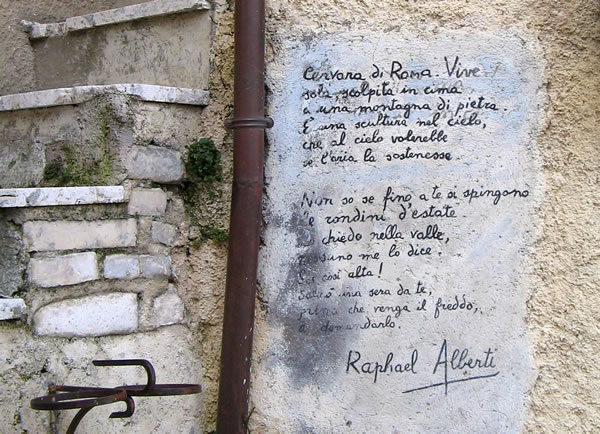 Cervara di Roma. Vive
sola, scolpita in cima
a una montagna di pietra.
È una scultura nel cielo,
che al cielo volerebbe
se l'aria la sostenesse

Non so se fino a te si spingono
le rondini d'estate
chiedo nella valle,
nessuno me lo dice.
Sei così alta!
Salirò una sera da te,
prima che venga il freddo,
a domandarlo.
Raphael Alberti